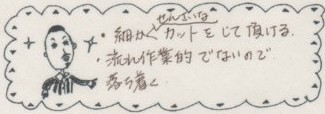 せんさいな
・細かくカットをして頂ける。
・流れ作業的でないので
落ち着く